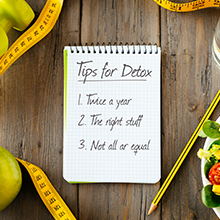 Tips for Detox
1. Twice a year
2. The right stuff
3. Not all ar equal